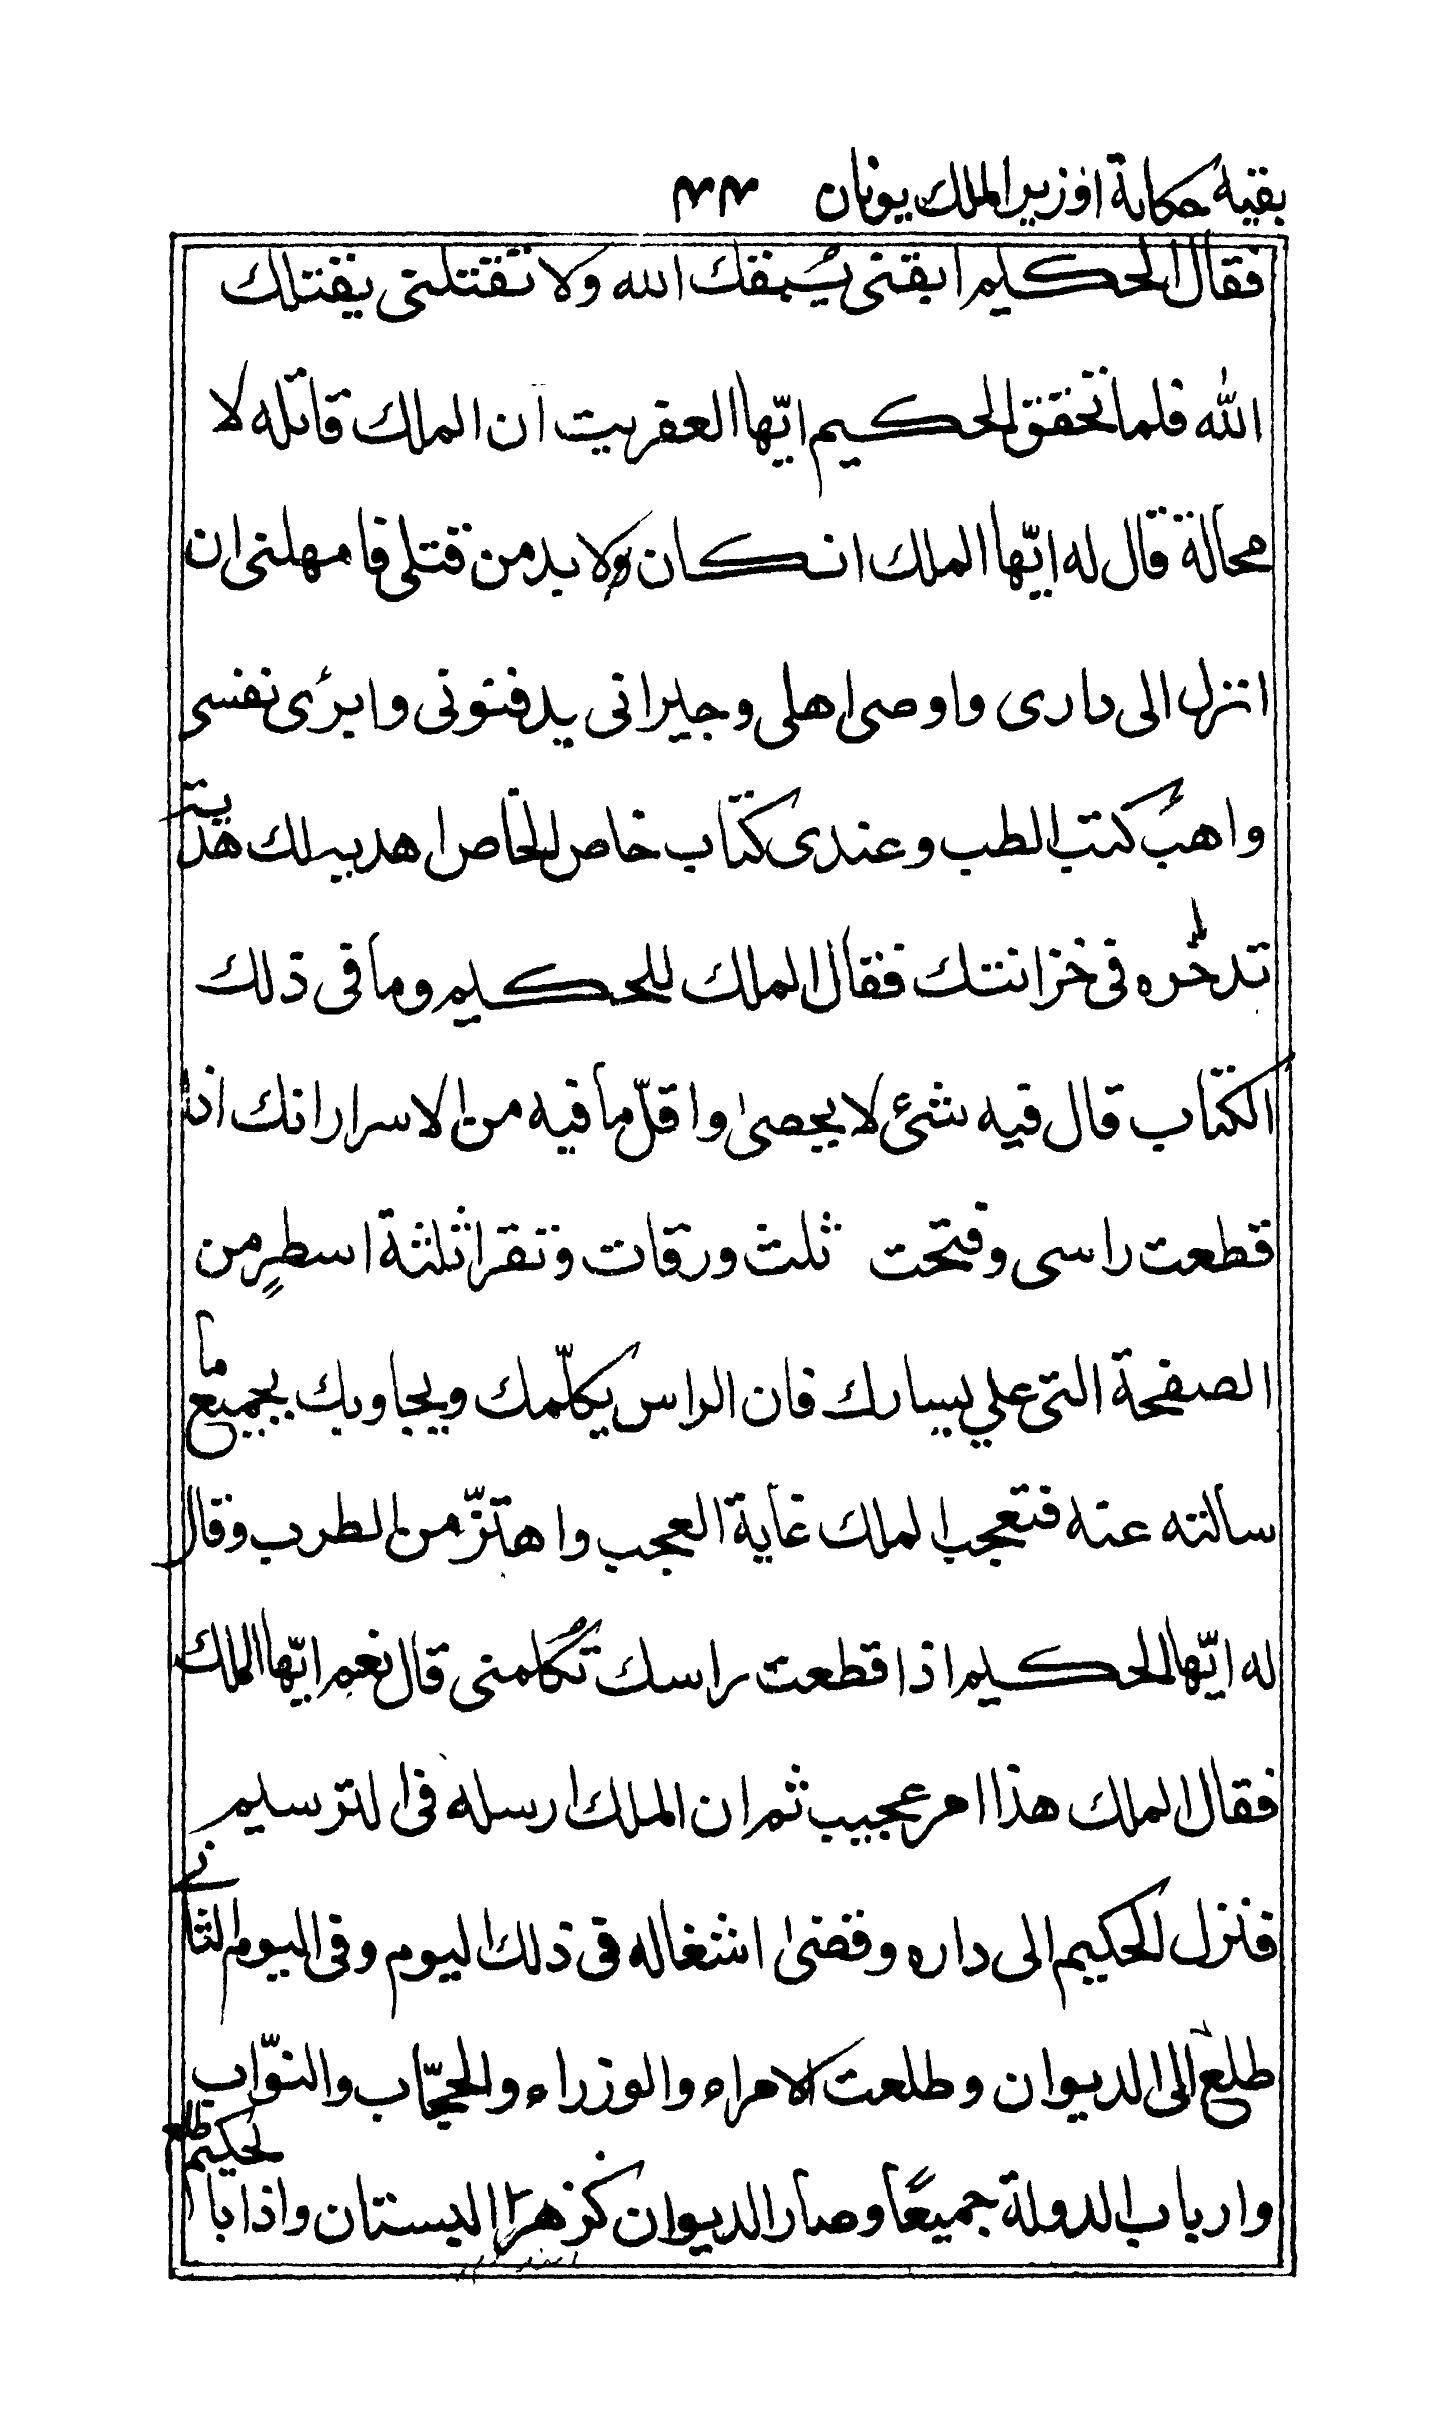 بقية حكاية اوزير الملك يونان ٣٣
فقال الحكيم ابقني يُبقك الله ولا تقتلني يقتلك
الله فلما تحقق الحكيم ايّها العفريت أن الملك قاتله لا
محالة قال له ايّها الملك ان كان ولا بد من قتلي فامهلني ان
انزل الى داري واوصي اهلي وجيراني يدفنوني وابرئ نفسي
واهبُ كتب الطب وعندي كتاب خاص الخاص اهديه لك هديّة
تدخّره في خزانتك فقال الملك للحكيم وما في ذلك
الكتاب قال فيه شئ لا يحصى واقلّ ما فيه من الاسرار انك اذا
قطعت راسي وفتحت ثلث ورقات وتقرا ثلثة اسطرٍ من
الصفحة التي علي يسارك فان الراس يكلّمك ويجاوبك بجميع ما
سالته عنه فتعجب الملك غاية العجب واهتزّ من الطرب وقال
له ايّها الحكيم اذا قطعت راسك تُكلمني قال نعم ايّها الملك
فقال الملك هذا امر عجيب ثم ان الملك ارسله في الترسيم
فنزل الحكيم الى داره وقضى اشغاله في ذلك اليوم وفي اليوم الثاني
طلع الى الديوان وطلعت الامراء والوزراء والحجّاب والنوّاب
وارباب الدولة جميعًا وصار الديوان كزهر البستان واذا بالحكيم طلع